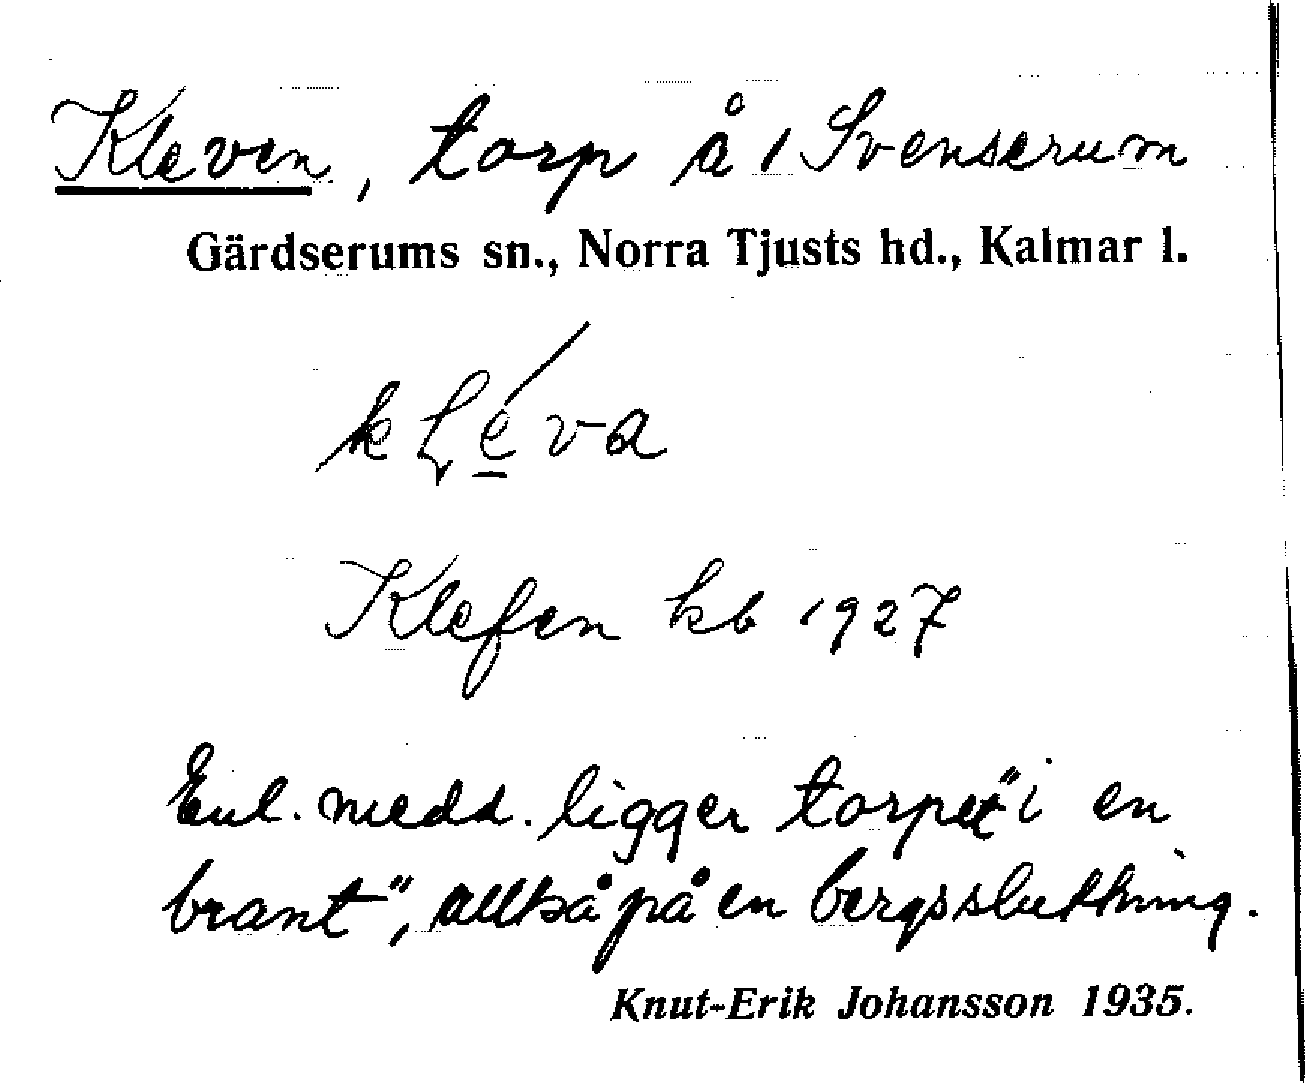 Kleven, torp å 1 Svenserum
Gärdserums sn., Norra Tjusts hd., Kalmar l.
kḷe̱´va
Klefen kb 1927
Enl. medd. ligger torpet "i en
brant", alltså på en bergssluttning.
Knut-Erik Johansson 1935.